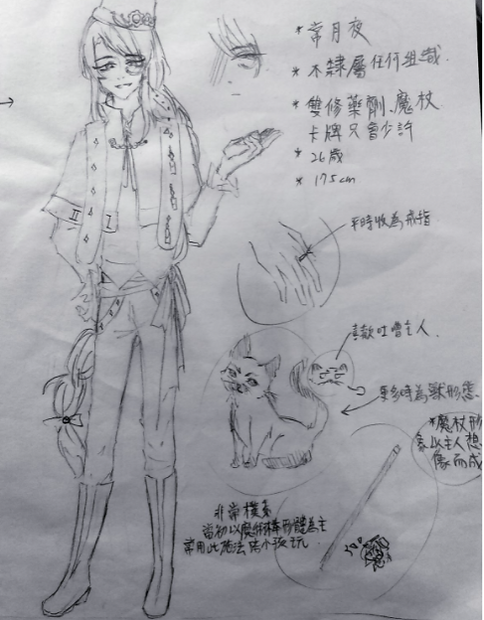 * 常月夜
* 不隸屬任何組織.
* 雙修藥劑.魔杖
卡牌只會少許
* 26歲
* 175cm
平時收為戒指
喜歡吐嘈主人.
更多時為獸形態.
*魔杖形
象以主人想
像而成
非常樸素
當初以魔術棒形體為主
常用此施法給小孩玩.